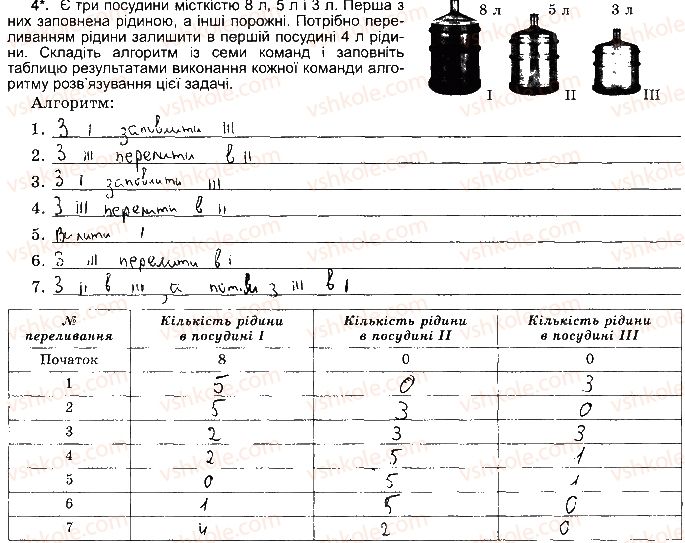 4*. Є три посудини місткістю 8 л, 5 л і 3 л. Перша з
них заповнена рідиною, а інші порожні. Потрібно пере-
ливанням рідини залишити в першій посудині 4 л ріди-
ни. Складіть алгоритм із семи команд і заповніть
таблицю результатами виконання кожної команди алго-
ритму розв'язування цієї задачі.
8 л 5 л 3 л
I II III
Алгоритм:
1. З I заповнити III
2. З III перелити в II
3. З I заповнити III
4. З III перелити в II
5. Вилити I
6. З III перелити в I
7. З II в III за потім з III в I
№ переливання Кількість рідини в посудині I Кількість рідини в посудині II Кількість рідини в посудині III
Початок 8 0 0
1 5 0 3
2 5 3 0
3 2 3 3
4 2 5 1
5 0 5 1
6 1 5 0
7 4 2 0
vshkole.com